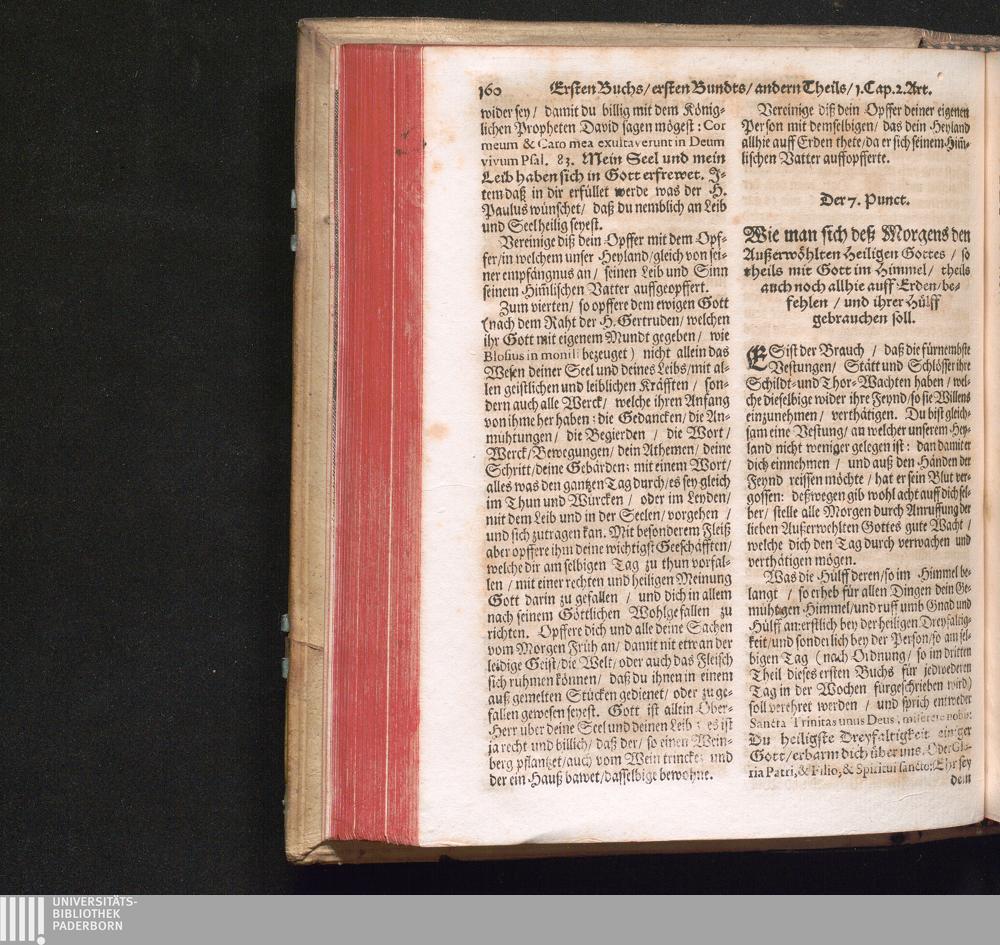 160 Ersten Buchs/ ersten Bundts/ andern Theils/ 1. Cap. 2. Art.
wider sey/ damit du billig mit dem König-
lichen Propheten David sagen mögest: Cor
meum & Caro mea exultaverunt in Deum
vivum Psal. 83. Mein Seel und mein
Leib haben sich in Gott erfrewet. J-
tem daß in dir erfüllet werde was der H.
Paulus wünschet/ daß du nemblich an Leib
und Seel heilig seyest.
Vereinige diß dein Opffer mit dem Opf-
fer/ in welchem unser Heyland/ gleich von sei-
ner empfängnus an/ seinen Leib und Sinn
seinem Him̃lischen Vatter auffgeopffert.
Zum vierten/ so opffere dem ewigen Gott
(nach dem Raht der H. Gertruden/ welchen
ihr Gott mit eigenem Mundt gegeben/ wie
Blosius in monili bezeuget) nicht allein das
Wesen deiner Seel und deines Leibs/ mit al-
len geistlichen und leiblichen Kräfften/ son-
dern auch alle Werck/ welche ihren Anfang
von ihme her haben: die Gedancken/ die An-
mühtungen/ die Begierden/ die Wort/
Werck/ Bewegungen/ dein Athemen/ deine
Schritt/ deine Gebärden: mit einem Wort/
alles was den gantzen Tag durch/ es sey gleich
im Thun und Würcken/ oder im Leyden/
mit dem Leib und in der Seelen/ vorgehen/
und sich zutragen kan. Mit besonderem Fleiß
aber opffere ihm deine wichtigst Geeschäfften/
welche dir am selbigen Tag zu thun vorfal-
len/ mit einer rechten und heiligen Meinung
Gott darin zu gefallen/ und dich in allem
nach seinem Göttlichen Wohlgefallen zu
richten. Opffere dich und alle deine Sachen
vom Morgen Früh an/ damit nit etwan der
leidige Geist/ die Welt/ oder auch das Fleisch
sich ruhmen können/ daß du ihnen in einem
auß gemelten Stücken gedienet/ oder zu ge-
fallen gewesen seyest. Gott ist allein Ober-
Herr uber deine Seel und deinen Leib: es ist
ja recht und billich/ daß der/ so einen Wein-
berg pflantzet/ auch vom Wein trincke: und
der ein Hauß bawet/ dasselbige bewohne.
Vereinige diß dein Opffer deiner eigenen
Person mit demselbigen/ das dein Heyland
allhie auff Erden thete/ da er sich seinem Him̃-
lischen Vatter auffopfferte.
Der 7. Punct.
Wie man sich deß Morgens den
Außerwöhlten Heiligen Gottes/ so
theils mit Gott im Himmel/ theils
auch noch allhie auff Erden/ be-
fehlen/ und ihrer Hülff
gebrauchen soll.
ES ist der Brauch/ daß die fürnembste
Vestungen/ Stätt und Schlösser ihre
Schildt- und Thor-Wachten haben/ wel-
che dieselbige wider ihre Feynd/ so sie Willens
einzunehmen/ verthätigen. Du bist gleich-
sam eine Vestung/ an welcher unserem Hey-
land nicht weniger gelegen ist: dan damit er
dich einnehmen/ und auß den Händen der
Feynd reissen möchte/ hat er sein Blut ver-
gossen: deßwegen gib wohl acht auff dich sel-
ber/ stelle alle Morgen durch Anruffung der
lieben Außerwehlten Gottes gute Wacht/
welche dich den Tag durch verwachen und
verthätigen mögen.
Was die Hülff deren/ so im Himmel be-
langt/ so erheb für allen Dingen dein Ge-
müht gen Himmel/ und ruff umb Gnad und
Hülff an: erstlich bey der heiligen Dreyfaltig-
keit/ und sonderlich bey der Person/ so am sel-
bigen Tag (nach Ordnung/ so im dritten
Theil dieses ersten Buchs für jedwederen
Tag in der Wochen fürgeschrieben wird)
soll verehret werden/ und sprich entweder
Sancta Trinitas unus Deus, miserere nobis:
Du heiligste Dreyfaltigkeit einiger
Gott/ erbarm dich über uns. Oder Glo-
ria Patri, & Filio, & Spiritui sancto: Ehr sey
dem
UNIVERSITÄTS-
BIBLIOTHEK
PADERBORN